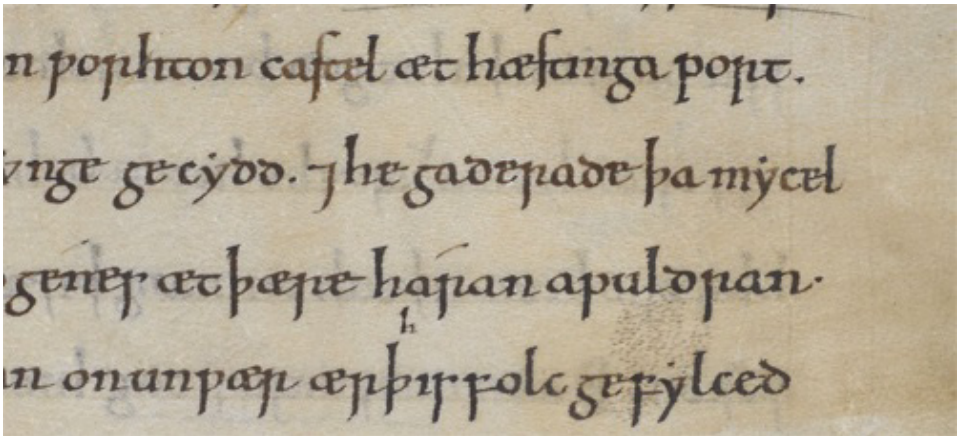 n ƿorhton castel æt hæstinga port.
ynge gecydd. ⁊ he gaderade þa mycel
genes æt þære háran apuldran·
an on unƿær ær þhis folc gefylced